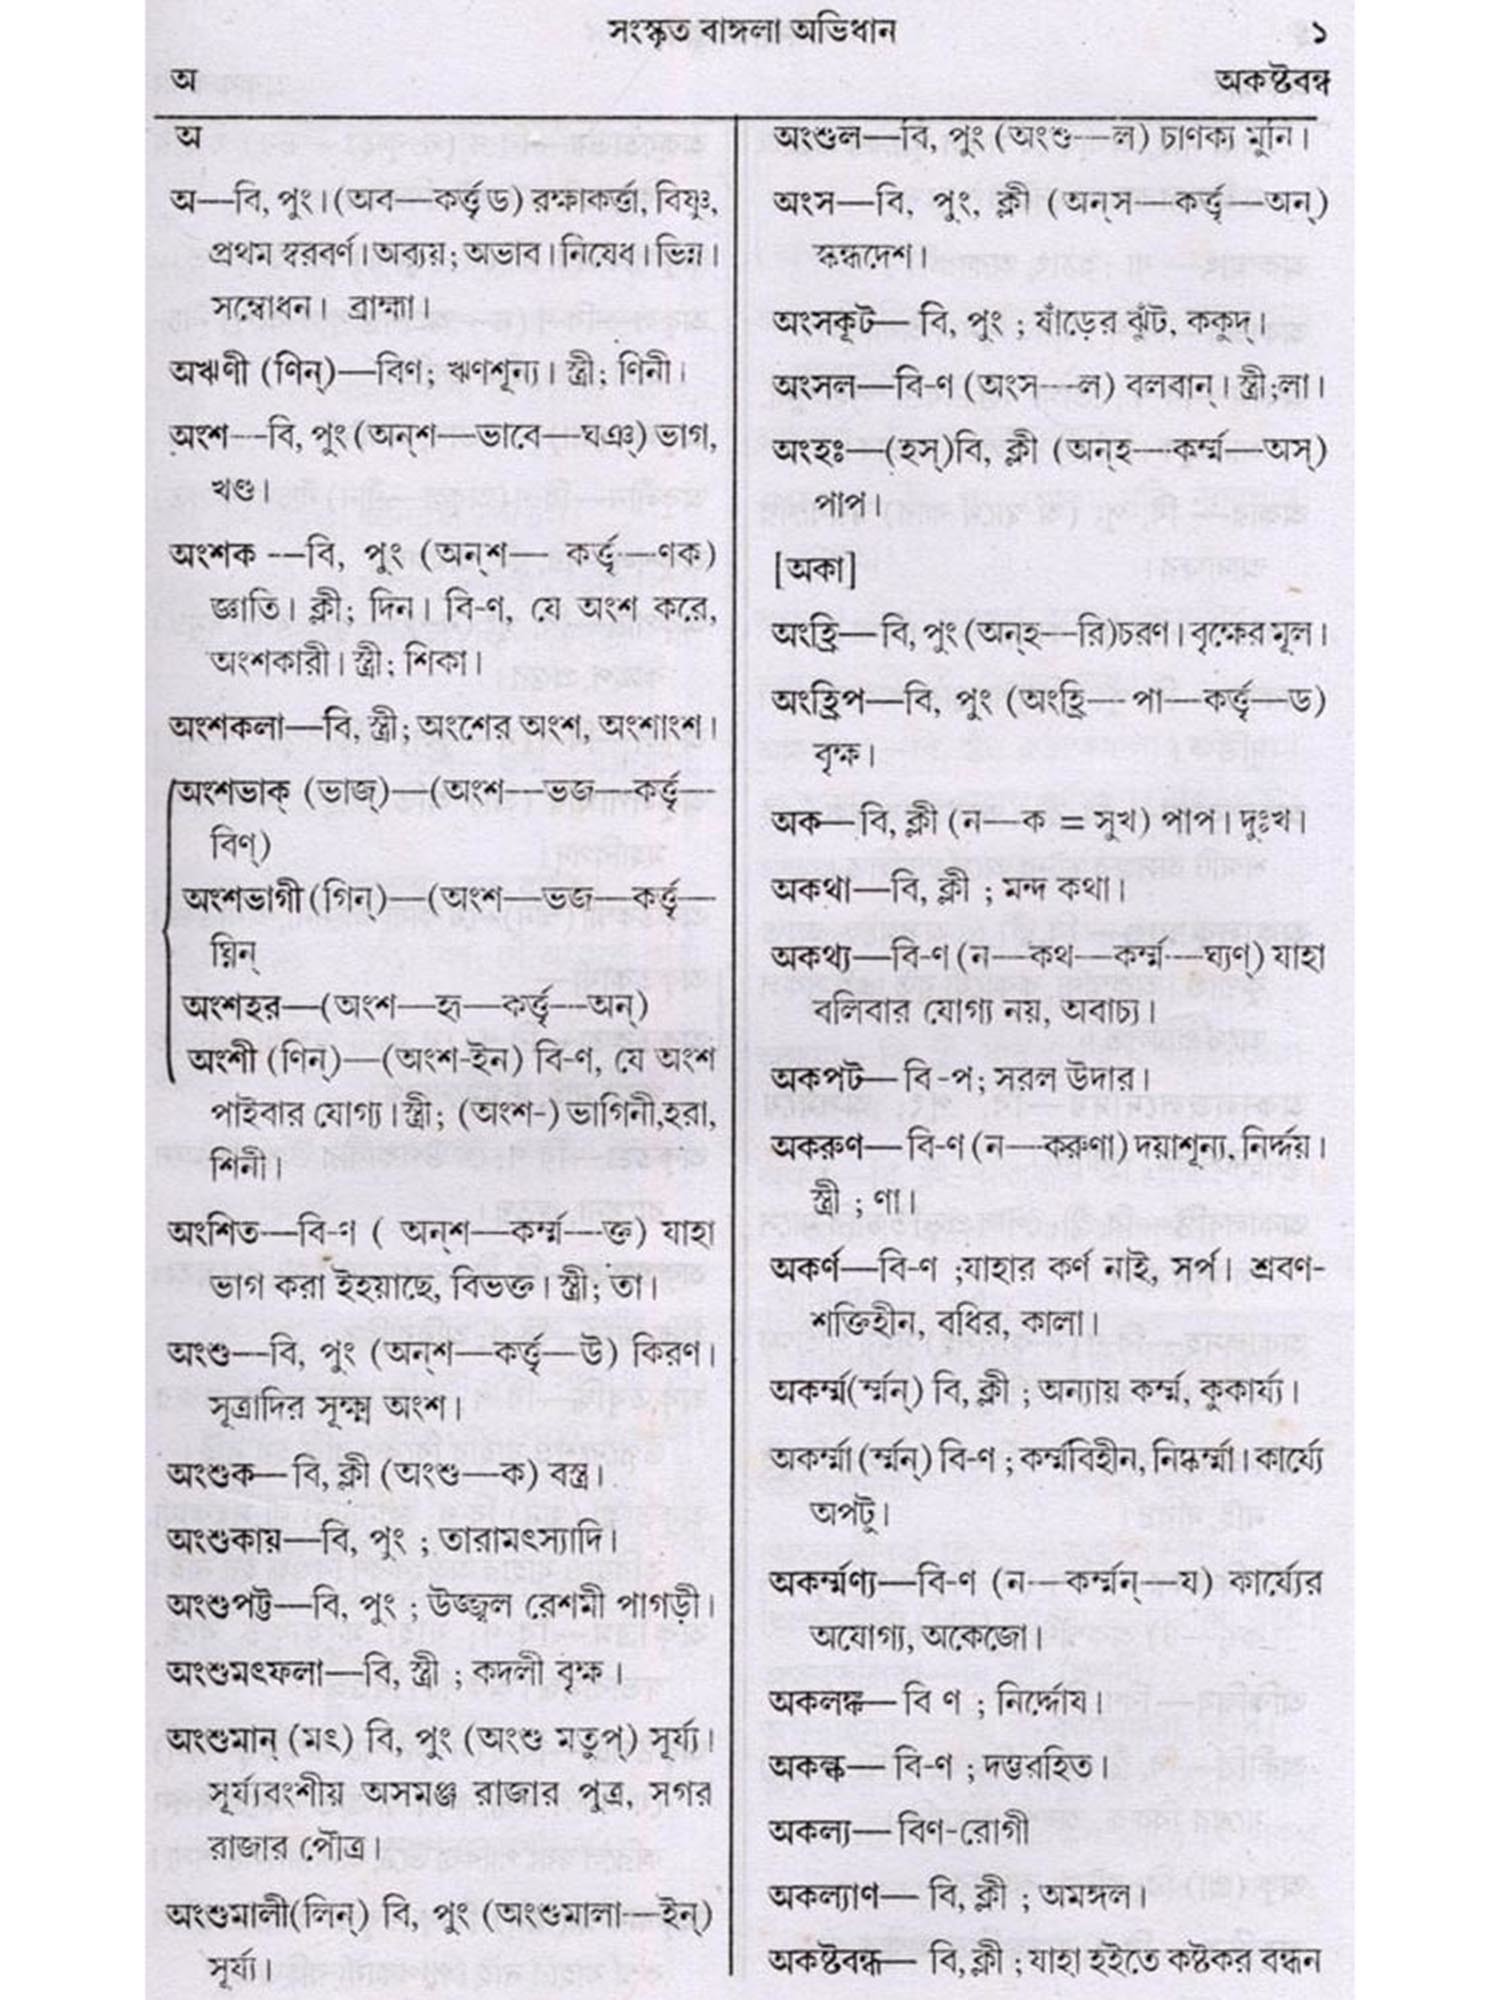 সংস্কৃত বাঙ্গলা অভিধান ১
অ অকষ্টবন্ধ
অ
অ—বি, পুং। (অব—কর্ত্তৃ ড) রক্ষাকর্ত্তা, বিষ্ণু,
প্রথম স্বরবর্ণ। অব্যয়; অভাব। নিষেধ। ভিন্ন।
সম্বোধন। ব্রাহ্মা।
অঋণী (ণিন্)—বিণ; ঋণশূন্য। স্ত্রী; ণিনী।
অংশ—বি, পুং (অন্‌শ—ভাবে—ঘঞ্) ভাগ,
খণ্ড।
অংশক —বি, পুং (অন্‌শ— কর্ত্তৃ—ণক)
জ্ঞাতি। ক্লী; দিন। বি-ণ, যে অংশ করে,
অংশকারী। স্ত্রী; শিকা।
অংশকলা—বি, স্ত্রী; অংশের অংশ, অংশাংশ।
অংশভাক্ (ভাজ্)—(অংশ—ভজ—কর্ত্তৃ—
বিণ্)
অংশভাগী (গিন্)—(অংশ—ভজ—কর্ত্তৃ—
ঘ্নিন্
অংশহর—(অংশ—হৃ—কর্ত্তৃ—অন্)
অংশী (ণিন্)—(অংশ-ইন) বি-ণ, যে অংশ
পাইবার যোগ্য। স্ত্রী; (অংশ-) ভাগিনী,হরা,
শিনী।
অংশিত—বি-ণ ( অন্‌শ—কর্ম্ম—ক্ত) যাহা
ভাগ করা ইহয়াছে, বিভক্ত। স্ত্রী; তা।
অংশু—বি, পুং (অন্‌শ—কর্ত্তৃ—উ) কিরণ।
সূত্রাদির সূক্ষ্ম অংশ।
অংশুক— বি, ক্লী (অংশু—ক) বস্ত্র।
অংশুকায়—বি, পুং ; তারামৎস্যাদি।
অংশুপট্ট—বি, পুং ; উজ্জ্বল রেশমী পাগড়ী।
অংশুমৎফলা—বি, স্ত্রী ; কদলী বৃক্ষ।
অংশুমান্ (মৎ) বি, পুং (অংশু মতুপ্) সূর্য্য।
সূর্য্যবংশীয় অসমঞ্জ রাজার পুত্র, সগর
রাজার পৌত্র।
অংশুমালী(লিন্) বি, পুং (অংশুমালা—ইন্)
সূর্য্য।
অংশুল—বি, পুং (অংশু—ল) চাণক্য মুনি।
অংস—বি, পুং, ক্লী (অন্‌স—কর্ত্তৃ—অন্)
স্কন্ধদেশ।
অংসকূট— বি, পুং ; ষাঁড়ের ঝুঁট, ককুদ্।
অংসল—বি-ণ (অংস—ল) বলবান্। স্ত্রী;লা।
অংহঃ—(হস্)বি, ক্লী (অন্‌হ—কর্ম্ম—অস্)
পাপ।
[অকা]
অংহ্রি—বি, পুং (অন্‌হ—রি)চরণ। বৃক্ষের মূল।
অংহ্রিপ—বি, পুং (অংহ্রি—পা—কর্ত্তৃ—ড)
বৃক্ষ।
অক—বি, ক্লী (ন—ক = সুখ) পাপ। দুঃখ।
অকথা—বি, ক্লী ; মন্দ কথা।
অকথ্য—বি-ণ (ন—কথ—কর্ম্ম—ঘ্যণ্) যাহা
বলিবার যোগ্য নয়, অবাচ্য।
অকপট— বি -প; সরল উদার।
অকরুণ— বি-ণ (ন—করুণা) দয়াশূন্য, নির্দ্দয়।
স্ত্রী ; ণা।
অকর্ণ—বি-ণ ;যাহার কর্ণ নাই, সর্প। শ্রবণ-
শক্তিহীন, বধির, কালা।
অকর্ম্ম(র্ম্মন্) বি, ক্লী ; অন্যায় কর্ম্ম, কুকার্য্য।
অকর্ম্মা (র্ম্মন্) বি-ণ ; কর্ম্মবিহীন, নিষ্কর্ম্মা। কার্য্যে
অপটু।
অকর্ম্মণ্য—বি-ণ (ন—কর্ম্মন্—য) কার্য্যের
অযোগ্য, অকেজো।
অকলঙ্ক— বি ণ ; নির্দ্দোষ।
অকল্ক— বি-ণ ; দম্ভরহিত।
অকল্য— বিণ-রোগী
অকল্যাণ— বি, ক্লী ; অমঙ্গল।
অকষ্টবন্ধ— বি, ক্লী ; যাহা হইতে কষ্টকর বন্ধন